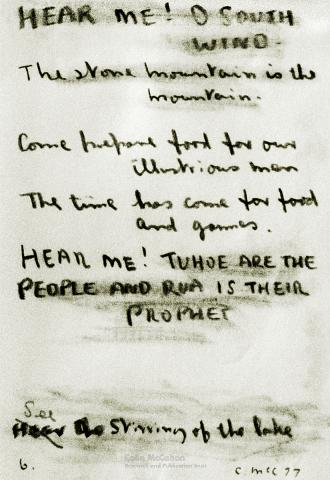 HEAR ME! O SOUTH
WIND.
The stone mountain is the
mountain.
Come prepare food for our
illustrious men
The time has come for food
and games.
HEAR ME! TUHOE ARE THE
PEOPLE AND RUA IS THEIR
PROPHET
See
Hear the Stirring of the lake
6.
C. McC 77
Colin McCahon
Research and Publication Trust